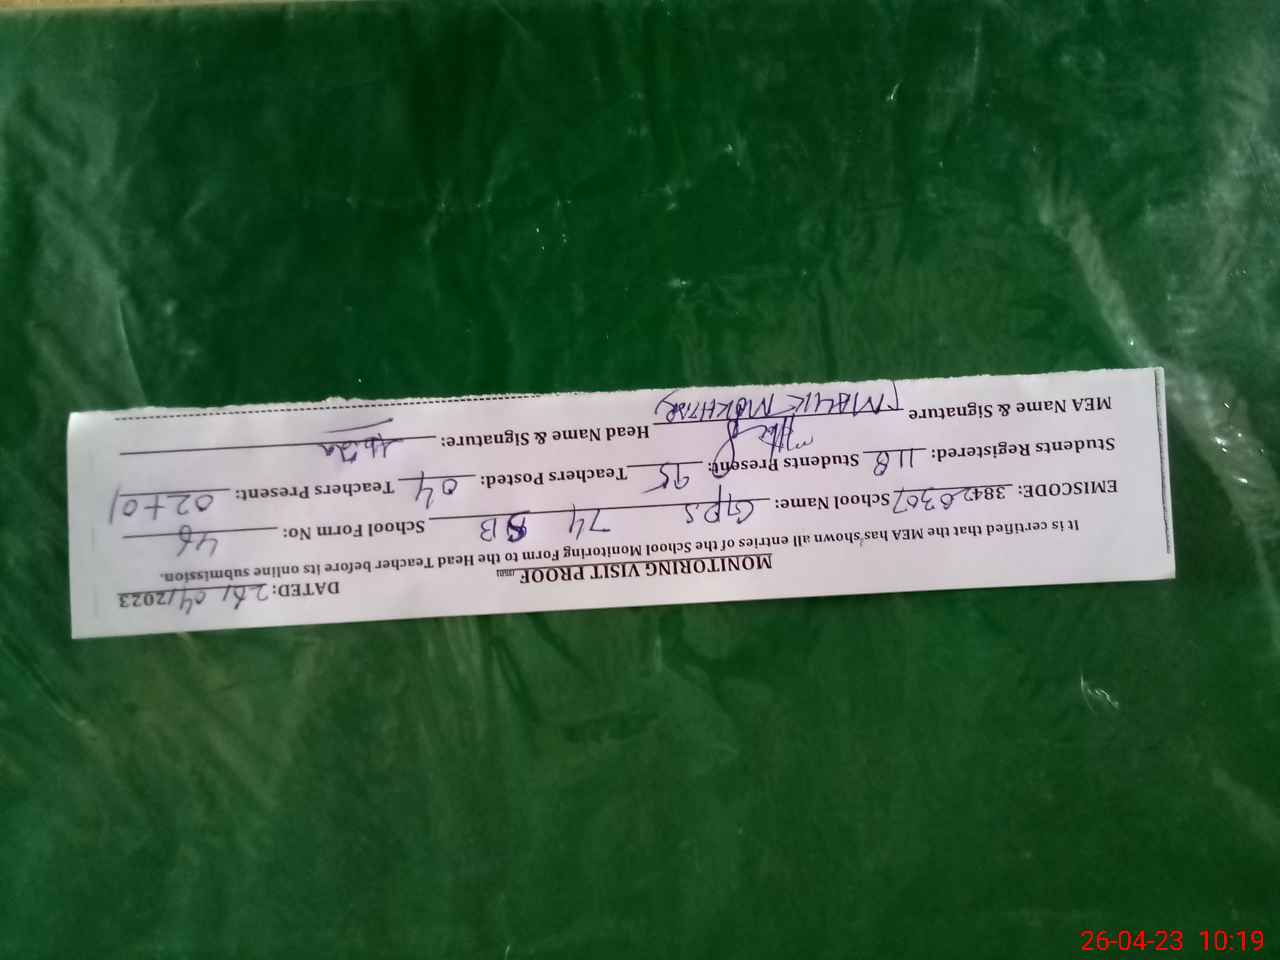 MONITORING VISIT PROOF
DATED: 26/04/2023
It is certified that the MEA has shown all entries of the School Monitoring Form to the Head Teacher before its online submission.
EMISCODE: 38420307 School Name: GPS 74 SB School Form No: 46
Students Registered: 118 Students Present: 95 Teachers Posted: 04 Teachers Present: 02+01
MEA Name & Signature MALIK MUKHTAR Head Name & Signature:
26-04-23 10:19